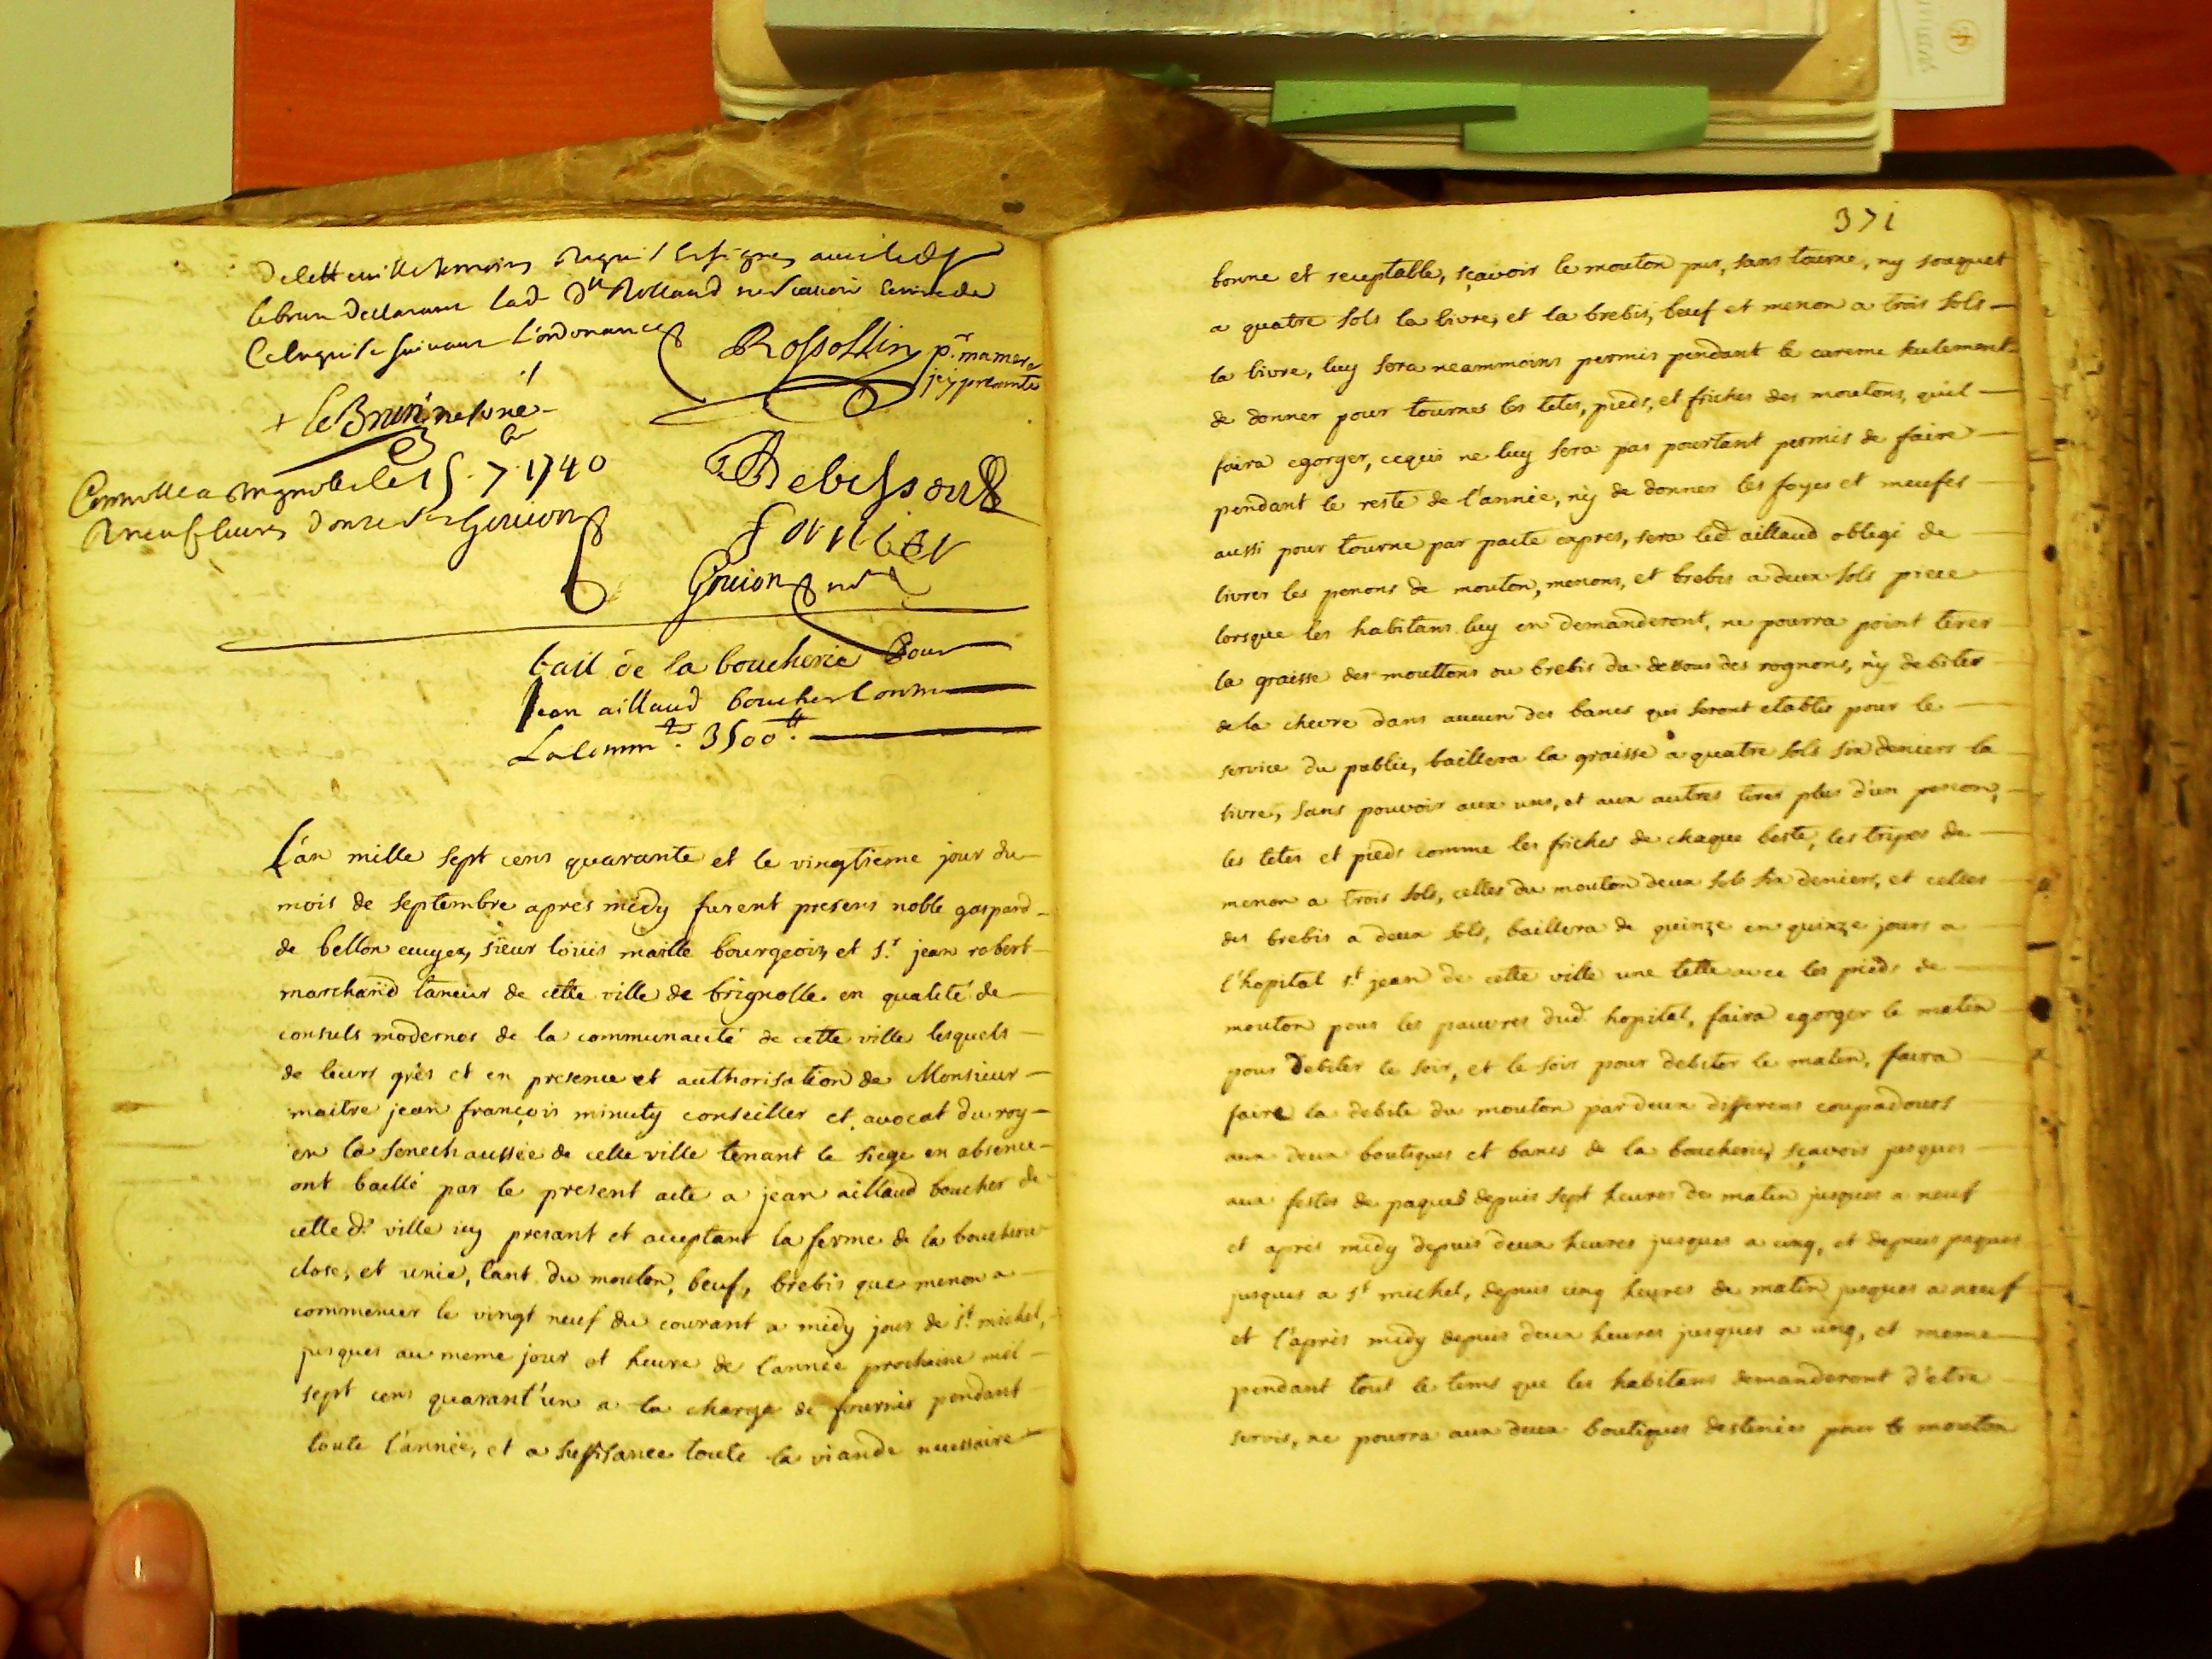 de cette ville temoins requis et signes avec led sr
lebrun declarant lad dlle Rolland ne scavoir
l'ordonance
Rossollin pr ma mere
icy presente
+ le Brun
Debesson
Fournier
Controlle a Brignolle le 15. 7. 1740
neuf livres douze s. Gouion
Gouion nore
bail de la boucherie Pour
Jean aillaud boucher Contre
La Comm.té 3500 ₶.
L'an mille sept cens quarante et le vingtieme jour du
mois de septembre apres midy furent presens noble gaspard
de bellon ecuyer, sieur louis maille bourgeois, et s.r jean robert
marchand taneur de cette ville de brignolle en qualité de
consuls modernes de la communauté de cette ville lesquels
de leurs grès et en presence et authorisation de Monsieur
maitre jean françois minuty conseiller et avocat du roy
en la senechaussée de cette ville tenant le siege en absence
ont baillé par le present acte a jean aillaud boucher de
cette d.e ville icy present et acceptant la ferme de la boucherie
close, et unie, tant du mouton, beuf, brebis que menon a
commencer le vingt neuf du courant a midy jour de s.t michel,
jusques au meme jour et heure de l'année prochaine mil
sept cens quarant'un a la charge de fournir pendant
toute l'année, et a suffisance toute la viande necessaire
371
bonne et receptable, sçavoir le mouton pur, sans tourne, ny souquet
a quatre sols la livre, et la brebis, beuf et menon a trois sols
la livre, luy sera neammoins permis pendant le careme seulement
de donner pour tournes les tetes, pieds, et friches des moutons, quil
faira egorger, cequi ne luy sera pas pourtant permis de faire
pendant le reste de l'année, ny de donner les foyes et meufes
aussi pour tourne par pacte expres, sera led. aillaud obligé de
livrer les penons de mouton, menons, et brebis a deux sols piece
lorsque les habitans luy en demanderont, ne pourra point tirer
la graisse des mouttons ou brebis du dessous des rognons, ny debiter
de la chevre dans aucun des bancs qui seront etablis pour le
service du public, baillera la graisse a quatre sols six deniers la
livre, sans pouvoir aux uns, et aux autres tirer plus d'un penon,
les tetes et pieds comme les friches de chaque beste, les tripes de
menon a trois sols, celles du mouton deux sols six deniers, et celles
des brebis a deux sols, baillera de quinze en quinze jours a
l'hopital s.t jean de cette ville une tette avec les pieds de
mouton pour les pauvres dud. hopital, faira egorger le matin
pour debiter le soir, et le soir pour debiter le matin, faira
faire la debite du mouton par deux differens coupadours
aux deux boutiques et bancs de la boucherie, sçavoir jusques
aux festes de paques depuis sept heures de matin jusques a neuf
et apres midy depuis deux heures jusques a cinq, et depuis paques
jusques a s.t michel, depuis cinq heures de matin jusques a neuf
et l'apres midy depuis deux heures jusques a cinq, et meme
pendant tout le tems que les habitans demanderont d'etre
servis, ne pourra aux deux boutiques destinées pour le mouton